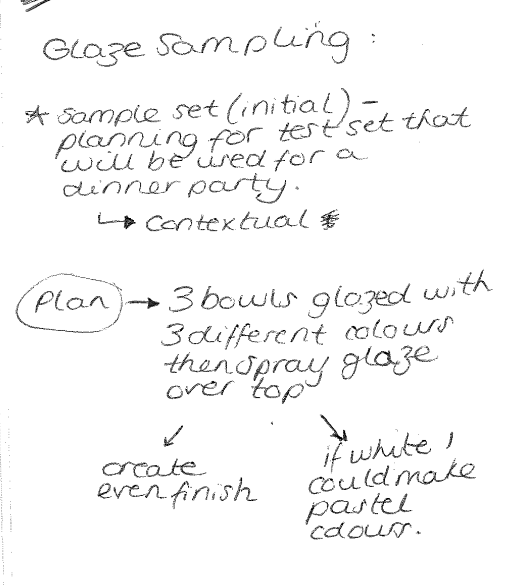 Glaze Sampling :
* Sample set (initial) -
planning for test set that
will be used for a
dinner party.
↳ contextual *
Plan → 3 bowls glazed with
3 different colours
then spray glaze
over top
create
even finish
if white I
could make
pastel
colours.